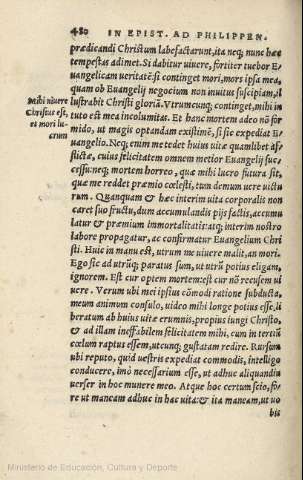 480 IN EPIST. AD PHILIPPEN.
prædicandi Christum labefactarunt, ita neq; nunc hæc
tempestas adimet. Si dabitur uiuere, fortiter tuebor E
uangelicam ueritatẽ: si continget mori, mors ipsa mea,
quam ob Euangelij negocium non inuitus suscipiam, il
lustrabit Christi gloriã. Vtrumcunq; contingat, mihi in
tuto est mea incolumitas. Et hanc mortem adeo nõ for
mido, ut magis optandam existimẽ, si sic expediat E-
uangelio. Neq; enim me tedet huius uitæ quamlibet af-
flictæ, cuius felicitatem omnem metior Euangelij suc-
cessu: neq; mortem horreo, quæ mihi lucro futura sit,
quæ me reddet præmio cœlesti, tum demum uere uictu
rum. Quanquam & hæc interim uita corporalis non
caret suo fructu, dum accumulandis pijs factis, accumu
latur & præmium immortalitatis: atq; interim nostro
labore propagatur, ac confirmatur Euangelium Chri
sti. Huic in manu est, utrum me uiuere malit, an mori.
Ego sic ad utrũq; paratus sum, ut utrũ potius eligam,
ignorem. Est cur optem mortem: est cur nõ recusem ui
uere. Verum ubi mei ipsius cõmodi ratione subducta,
meum animum consulo, uideo mihi longe potius esse, li
beratum ab huius uitæ erumnis, propius iungi Christo,
& ad illam ineffabilem felicitatem mihi, cum in tertiũ
cœlum raptus essem, utcunq; gustatam redire. Rursum
ubi reputo, quid uestris expediat commodis, intelligo
conducere, imò necessarium esse, ut adhuc aliquandiu
uerser in hoc munere meo. Atque hoc certum scio, fo-
re ut maneam adhuc in hac uita: & ita maneam, ut uo
bis
Mihi uiuere
Christus est,
et mori lu-
crum
Ministerio de Educación, Cultura y Deporte